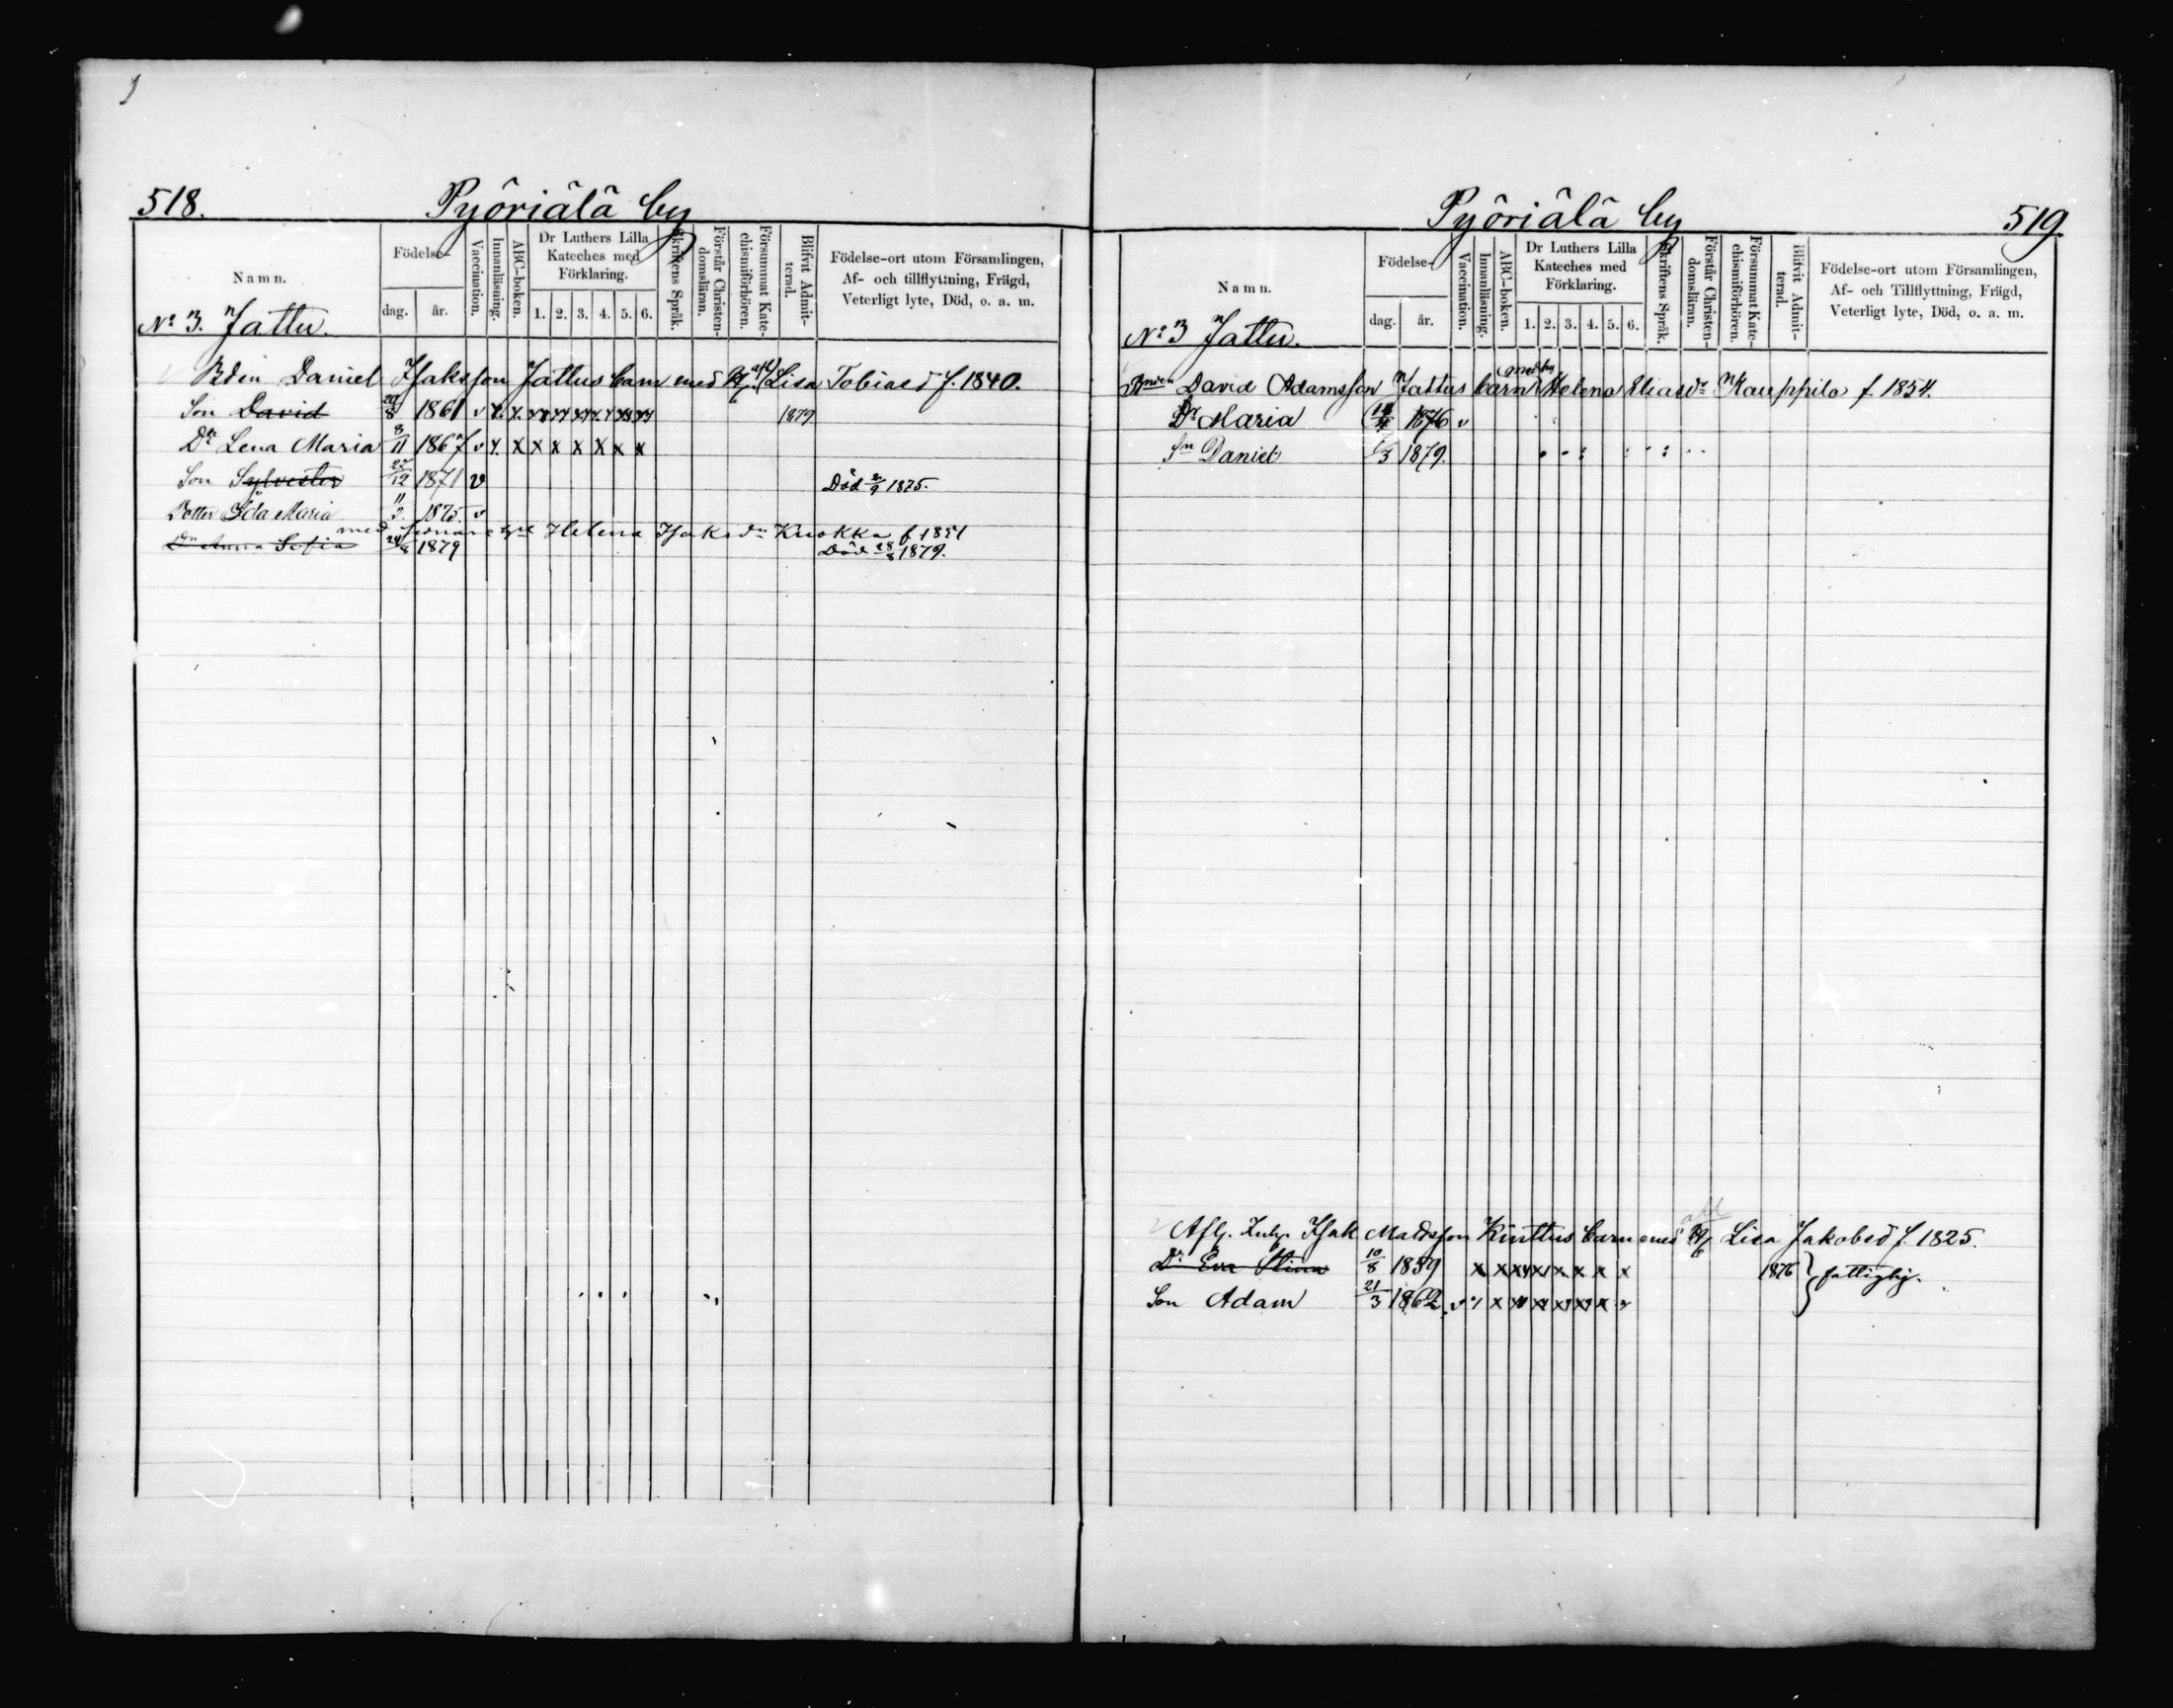 518.
Pyöriälä by
Namn.
Födelse-
dag.
år.
Vaccination.
Innanläsning.
ABC-boken.
Dr Luthers Lilla
Kateches med
Förklaring.
1. 2. 3. 4. 5. 6.
Skriftens Språk.
Förstår Christen-
domsläran.
Försummat Kate-
chismiförhören.
Blifvit Admit-
terad.
Födelse-ort utom Församlingen,
Af- och tillflyttning, Frägd,
Veterligt lyte, Död, o. a. m.
No 3. Jattu.
Bden Daniel Isaksson Jattus barn med Lisa Tobiasd f. 1840.
Son David 20/8 1861 v x x 1879
Dr Lena Maria 8/11 1867 v x x x x x x x x
Son Sylvester 22/12 1871 v Död 2/9 1875.
Dotter Ida Maria 11/2 1875. v
med sednare Helena Isaksdr Knokka f 1851
Dr Anna Sofia 24/8 1879 Död 28/8 1879.
Pyöriälä by
519
Namn.
Födelse-
dag.
år.
Vaccination.
Innanläsning.
ABC-boken.
Dr Luthers Lilla
Kateches med
Förklaring.
1. 2. 3. 4. 5. 6.
Skriftens Språk.
Förstår Christen-
domsläran.
Försummat Kate-
chismiförhören.
Blifvit Admit-
terad.
Födelse-ort utom Församlingen,
Af- och Tillflyttning, Frägd,
Veterligt lyte, Död, o. a. m.
No 3 Jattu.
Bnden David Adamsson Jattus barn med Helena Eliasdr Kauppila f. 1854.
Dr Maria 1876 v
Sn Daniel 1/3 1879.
Afl. Isak Matdsson Kinttus barn med Lisa Jakobsd f. 1825.
Dr Eva Stina 10/8 1859 x x x x x x x x 1876
Son Adam 21/3 1862 v x x x x x x x
fattighj.